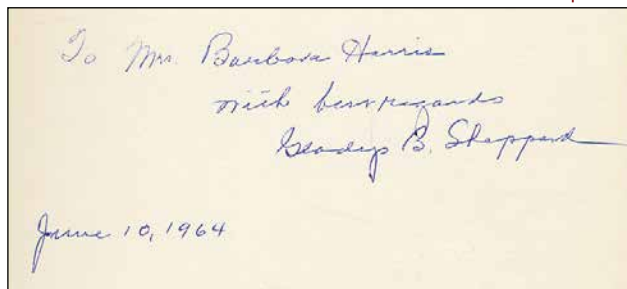 To Mrs. Barbara Harris
with best regards
Gladys B. Sheppard
June 10, 1964